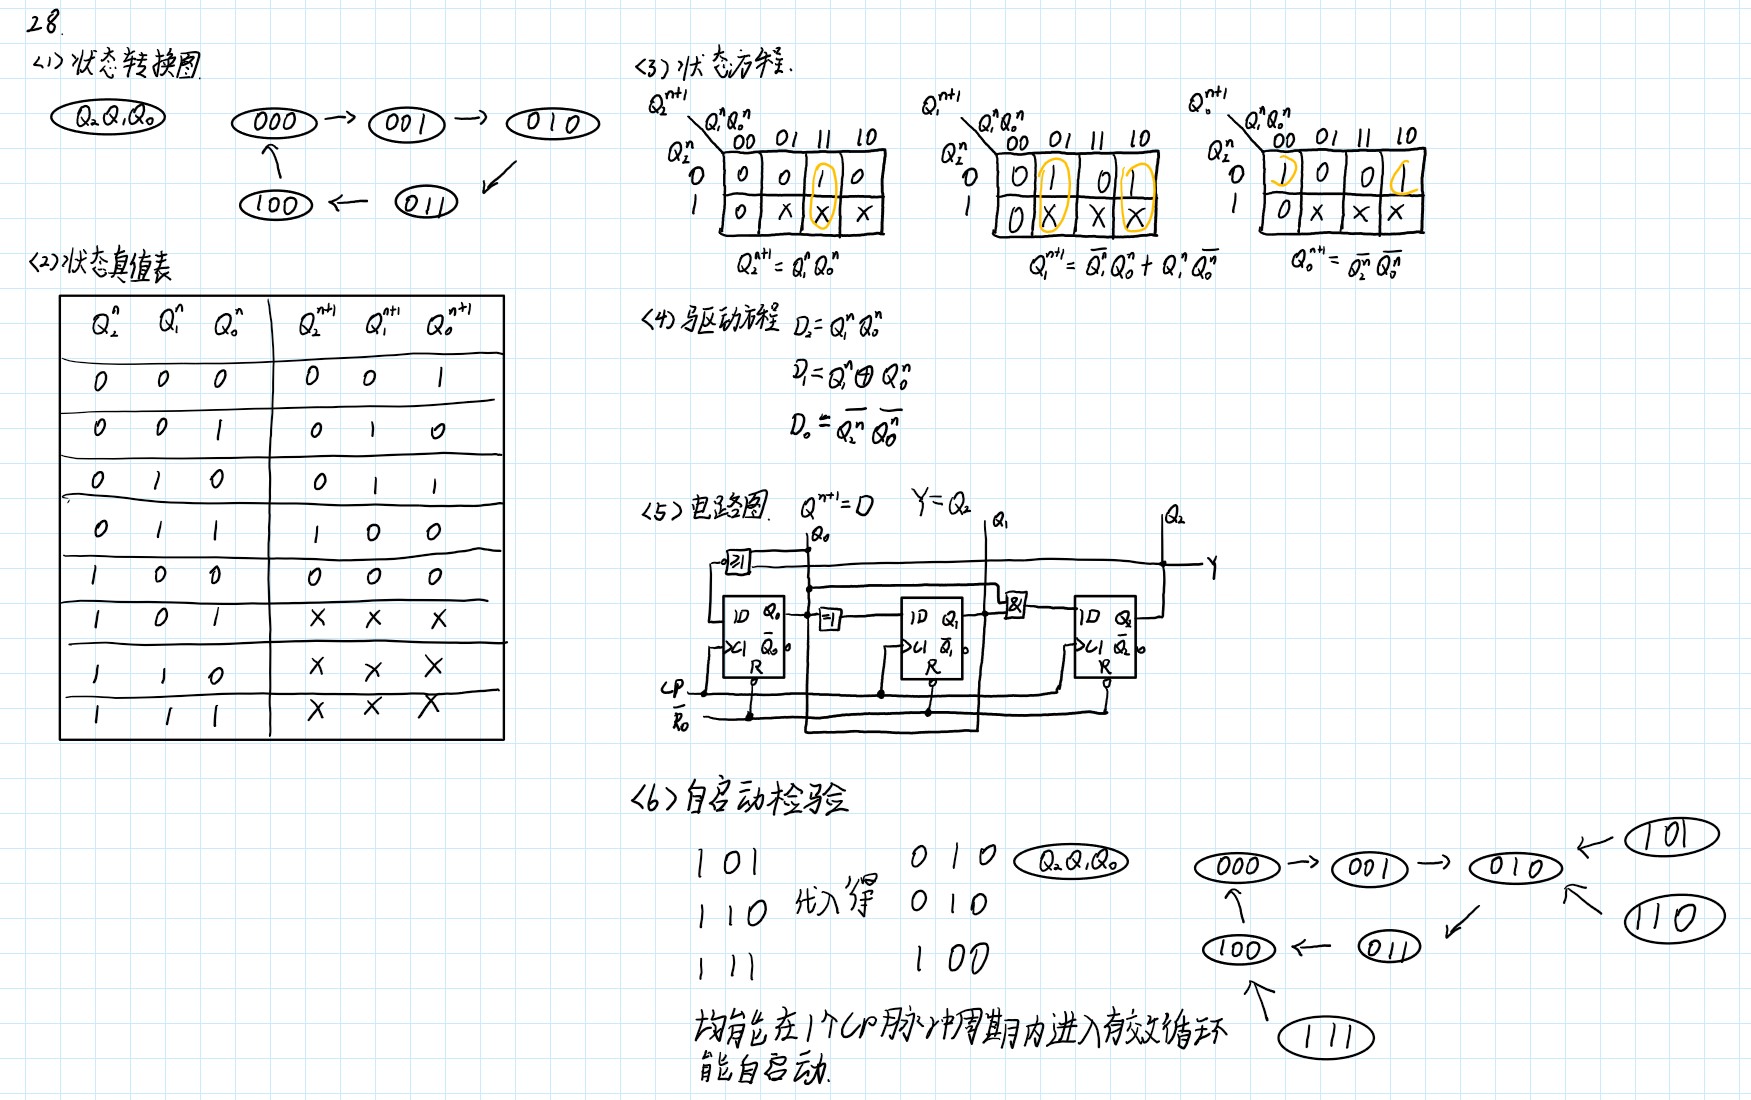 28.
<1>状态转换图
Q₂Q₁Q₀
000 → 001 → 010
100 ← 011
<2>状态真值表
Q₂ⁿ Q₁ⁿ Q₀ⁿ Q₂ⁿ⁺¹ Q₁ⁿ⁺¹ Q₀ⁿ⁺¹
0 0 0 0 0 1
0 0 1 0 1 0
0 1 0 0 1 1
0 1 1 1 0 0
1 0 0 0 0 0
1 0 1 × × ×
1 1 0 × × ×
1 1 1 × × ×
<3>状态方程.
Q₂ⁿ⁺¹
Q₁ⁿQ₀ⁿ
Q₂ⁿ 00 01 11 10
0 0 0 1 0
1 0 × × ×
Q₂ⁿ⁺¹ = Q₁ⁿQ₀ⁿ
Q₁ⁿ⁺¹
Q₁ⁿQ₀ⁿ
Q₂ⁿ 00 01 11 10
0 0 1 0 1
1 0 × × ×
Q₁ⁿ⁺¹ = Q̅₁ⁿQ₀ⁿ + Q₁ⁿQ̅₀ⁿ
Q₀ⁿ⁺¹
Q₁ⁿQ₀ⁿ
Q₂ⁿ 00 01 11 10
0 1 0 0 1
1 0 × × ×
Q₀ⁿ⁺¹ = Q̅₂ⁿ Q̅₀ⁿ
<4>驱动方程 D₂=Q₁ⁿQ₀ⁿ
D₁=Q₁ⁿ⊕Q₀ⁿ
D₀=Q̅₂ⁿ Q̅₀ⁿ
<5>电路图. Qⁿ⁺¹=D Y=Q₂
Q₀ Q₁ Q₂
≥1 Y
1D Q₀ =1 1D Q₁ & 1D Q₂
>C1 Q̅₀ >C1 Q̅₁ >C1 Q̅₂
R R R
CP
R̅₀
<6>自启动检验
101 010 Q₂Q₁Q₀
110 代入得 010
111 100
000 → 001 → 010 ← 101
110
100 ← 011
111
均能在1个CP脉冲周期内进入有效循环
能自启动.